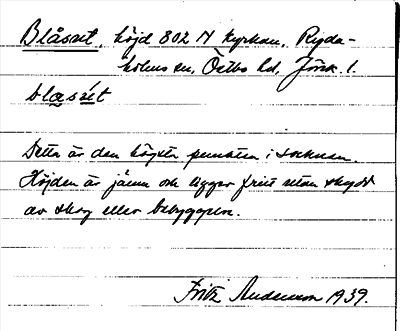 Blåsut, höjd 802 N kyrkan, Ryda-
holms sn, Östbo hd, Jönk. l.
blæsʉ́t
Detta är den högsta punkten i socknen.
Höjden är jämn och ligger fritt utan skydd
av skog eller bebyggelse.
Fritz Andersson 1939.